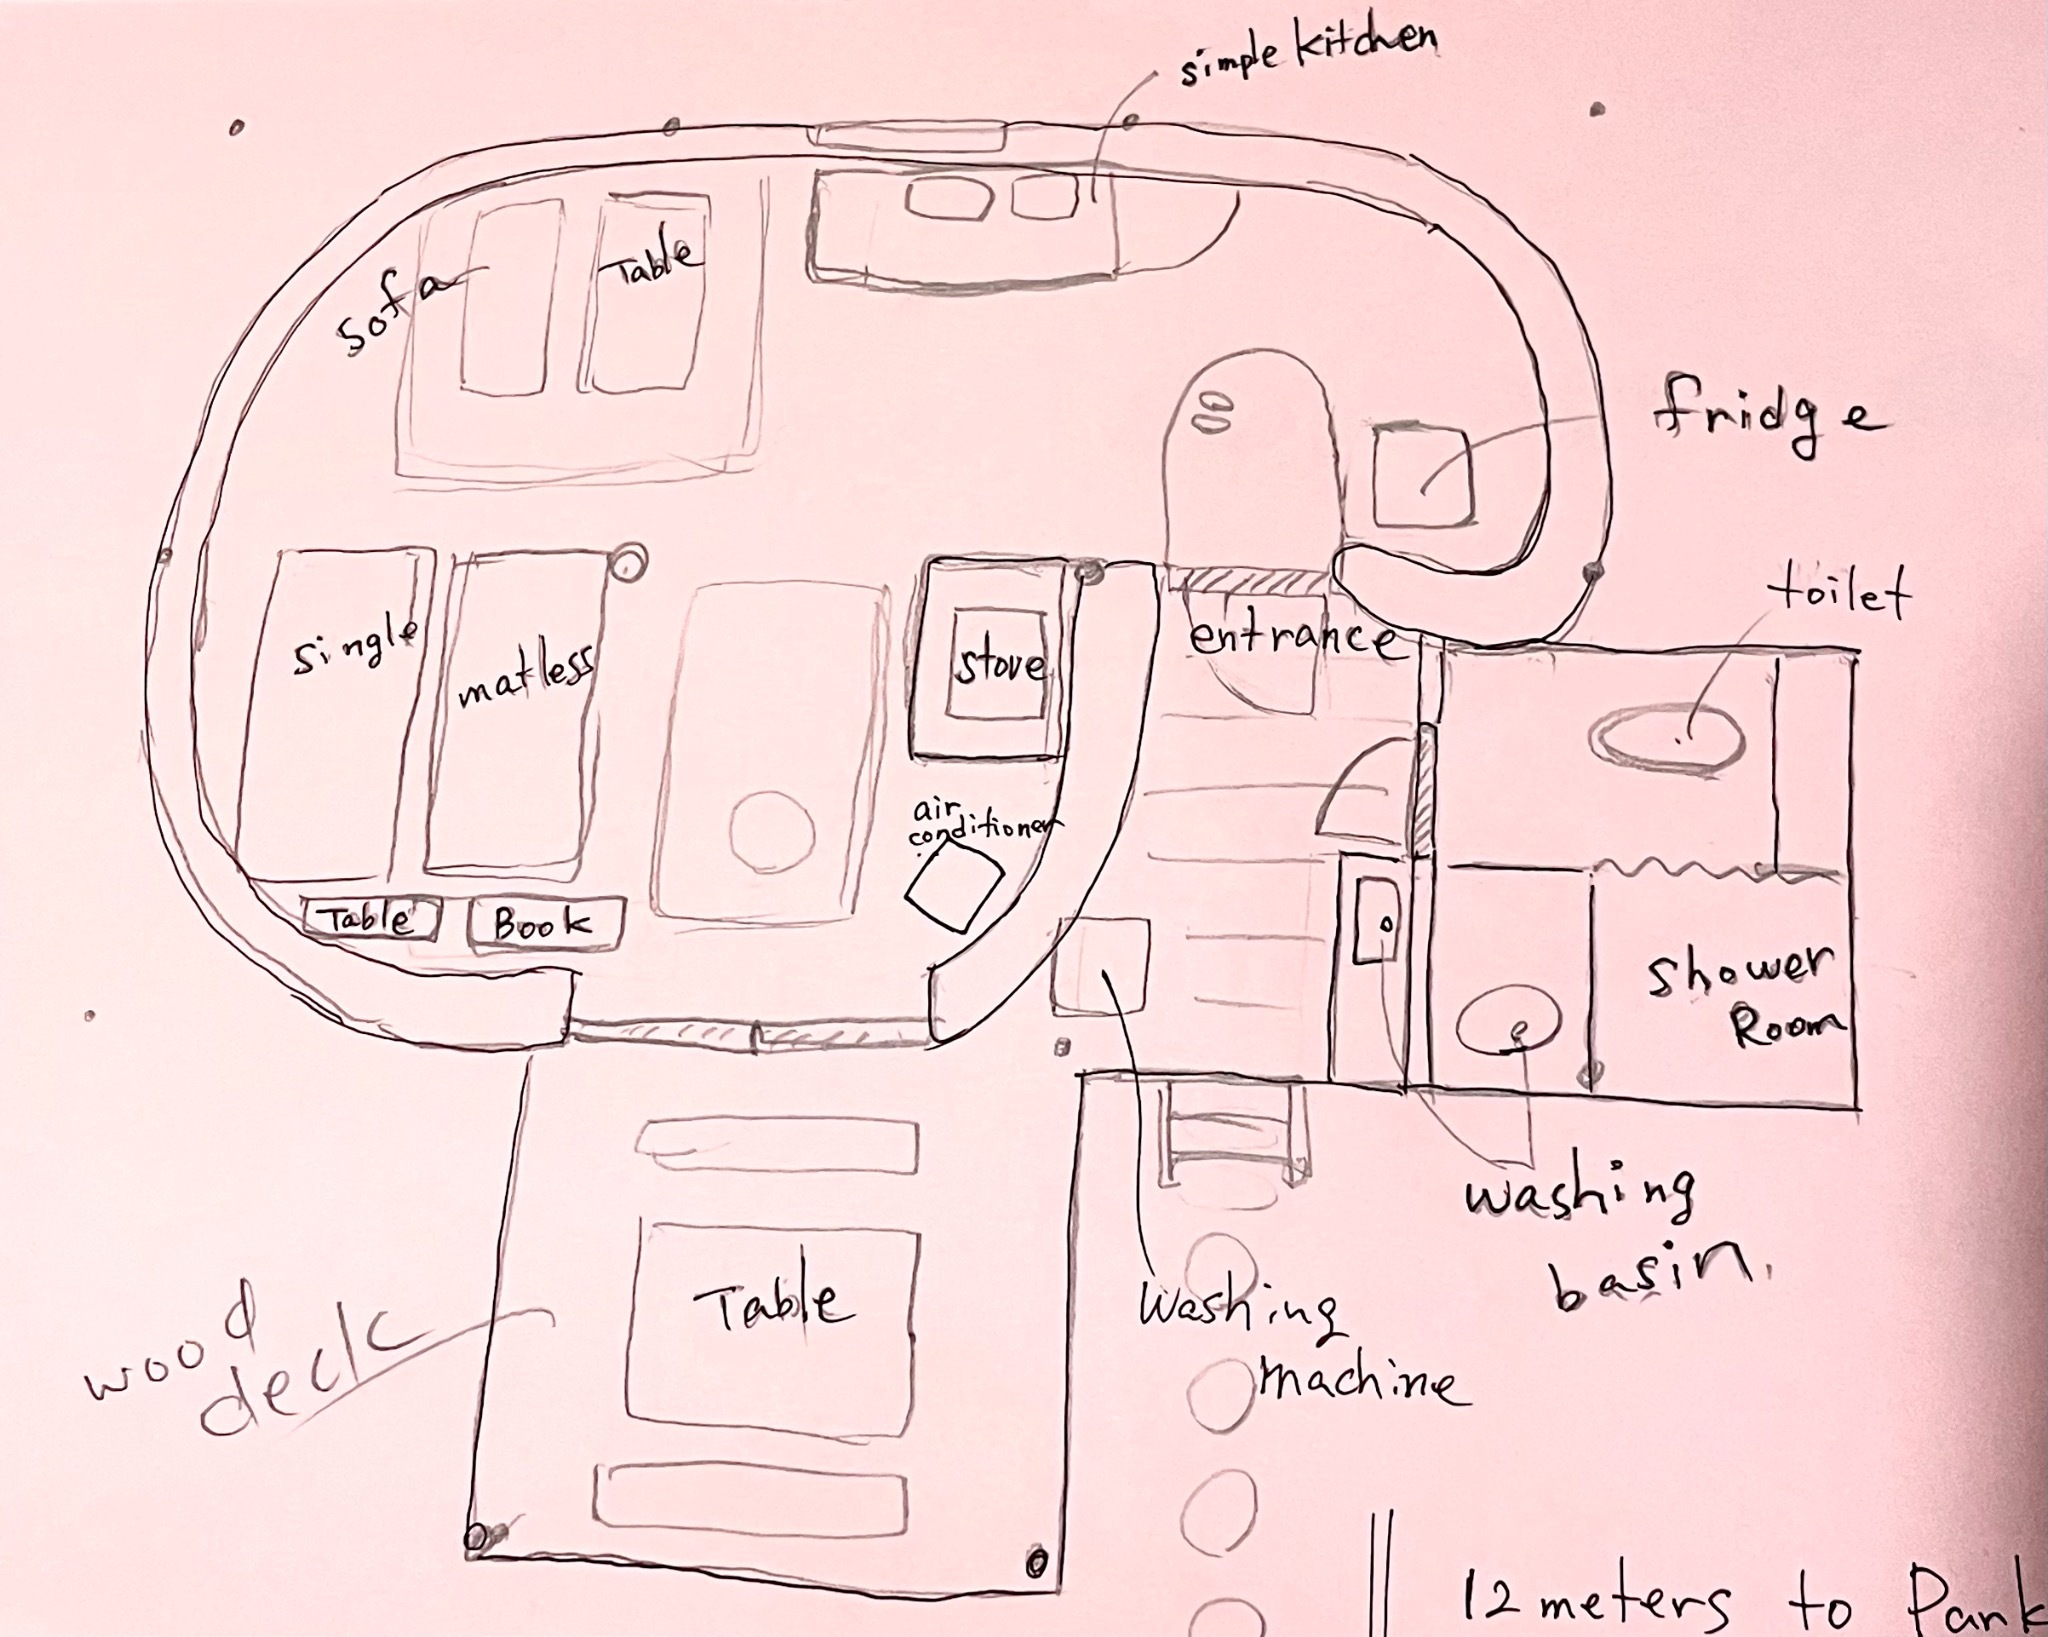 simple kitchen
sofa
Table
fridge
toilet
entrance
single
matless
stove
air
conditioner
Table
Book
shower
Room
washing
basin.
Table
wood
deck
Washing
machine
12 meters to Park